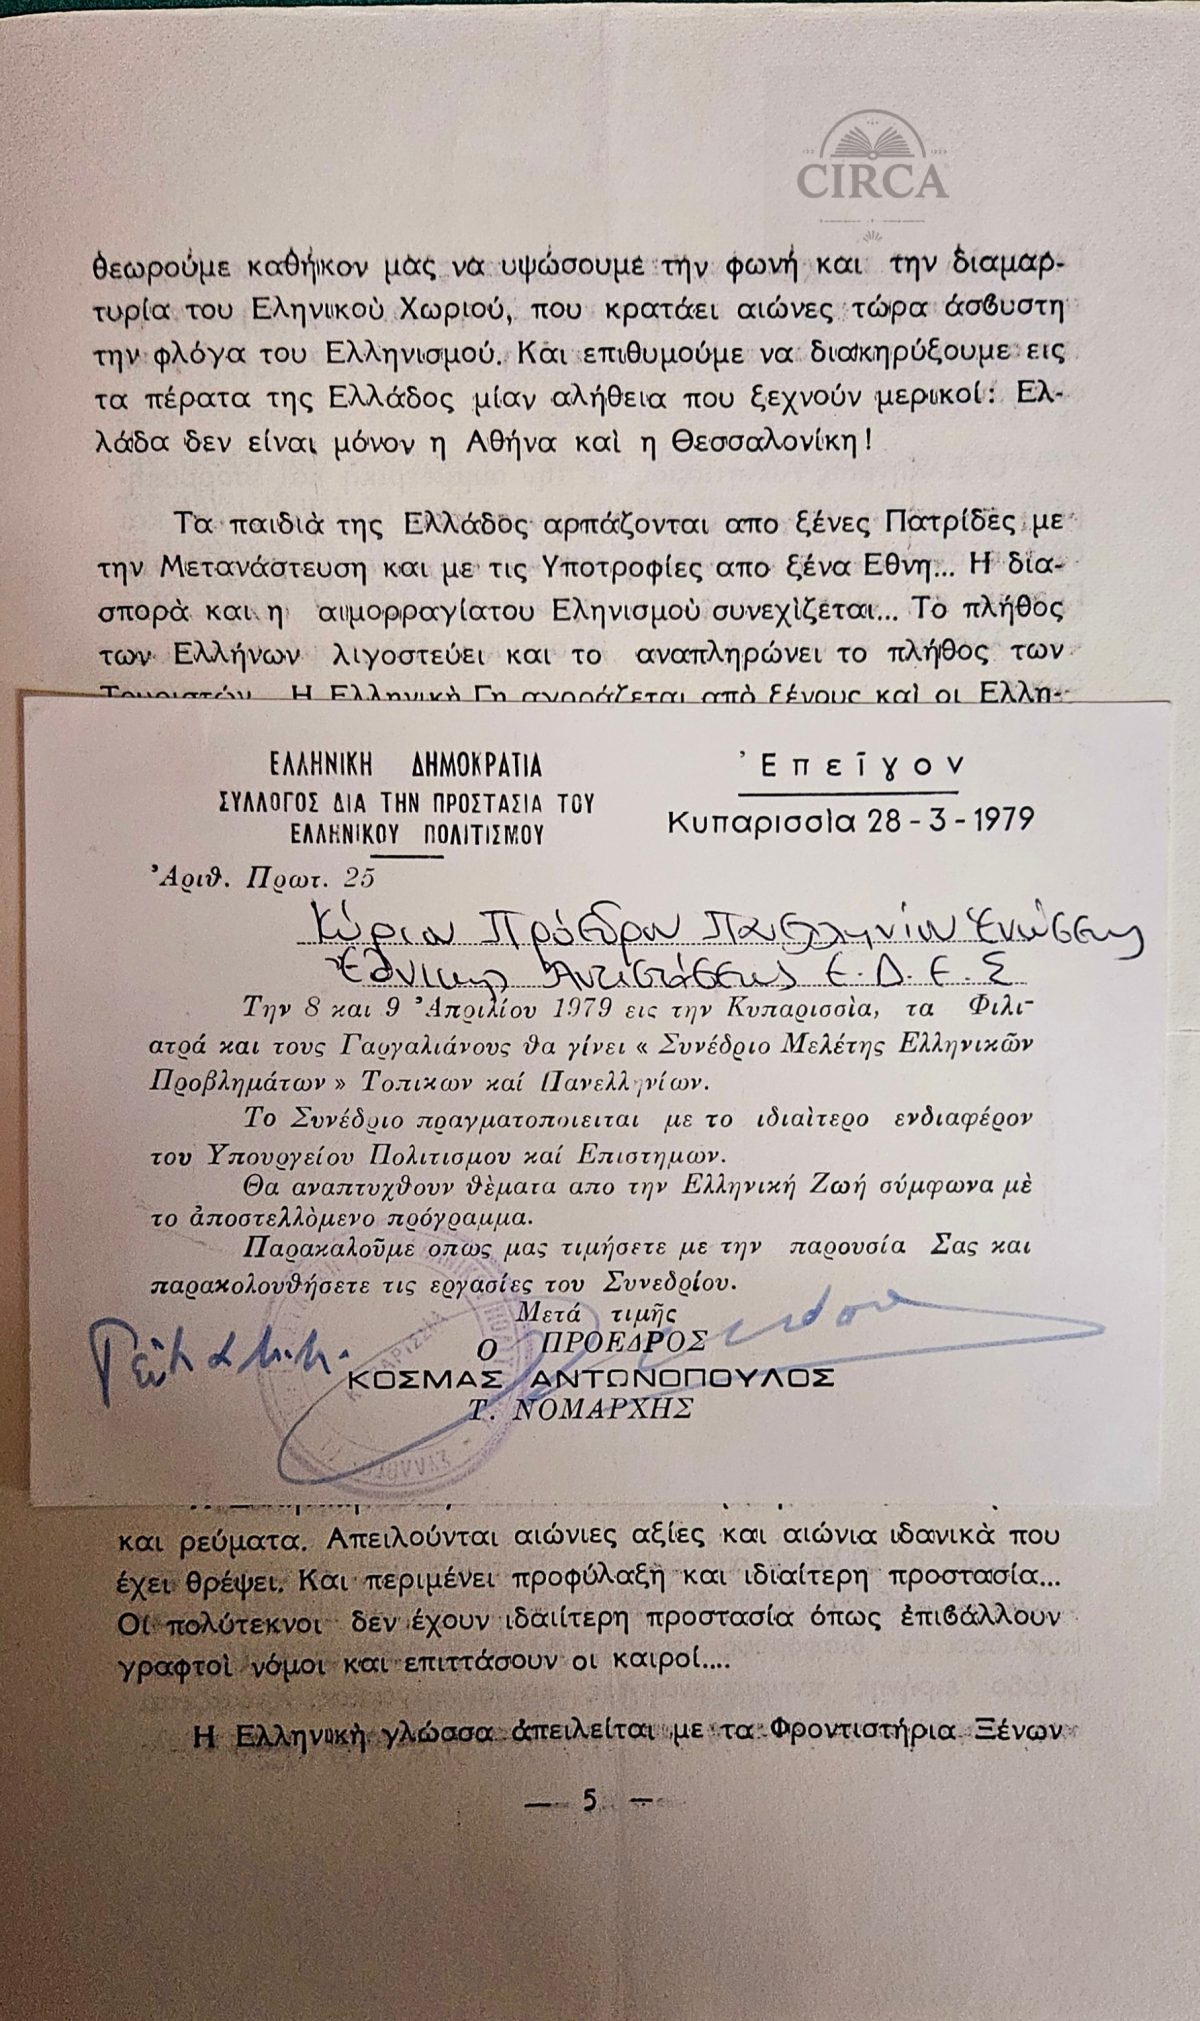 CIRCA
θεωρούμε καθήκον μας να υψώσουμε την φωνή και την διαμαρ-
τυρία του Εληνικοὺ Χωριού, που κρατάει αιώνες τώρα άσβυστη
την φλόγα του Ελληνισμού. Και επιθυμούμε να διακηρύξουμε εις
τα πέρατα της Ελλάδος μίαν αλήθεια που ξεχνούν μερικοί: Ελ-
λάδα δεν είναι μόνον η Αθήνα καὶ η Θεσσαλονίκη!
Τα παιδιὰ της Ελλάδος αρπάζονται απο ξένες Πατρίδες με
την Μετανάστευση και με τις Υποτροφίες απο ξένα Εθνη... Η δια-
σπορὰ και η αιμορραγίατου Εληνισμοὺ συνεχὶζεται... Το πλήθος
των Ελλήνων λιγοστεύει και το αναπληρώνει το πλήθος των
Τουριστών. Η Ελληνικὴ Γη αγοράζεται απὸ ξένους καὶ οι Ελλη-
ΕΛΛΗΝΙΚΗ ΔΗΜΟΚΡΑΤΙΑ
ΣΥΛΛΟΓΟΣ ΔΙΑ ΤΗΝ ΠΡΟΣΤΑΣΙΑ ΤΟΥ
ΕΛΛΗΝΙΚΟΥ ΠΟΛΙΤΙΣΜΟΥ
Ἐπεῖγον
Κυπαρισσὶα 28 - 3 - 1979
Ἀριθ. Πρωτ. 25
Κύριον Πρόεδρον Πανελληνίου Ἑνώσεως
Ἐθνικῆς Ἀντιστάσεως Ε.Δ.Ε.Σ
Την 8 και 9 Ἀπριλίου 1979 εις την Κυπαρισσὶα, τα Φιλι-
ατρά και τους Γαργαλιάνους θα γίνει « Συνέδριο Μελέτης Ελληνικῶν
Προβλημάτων » Τοπικων καί Πανελληνίων.
Το Συνέδριο πραγματοποιειται με το ιδιαὶτερο ενδιαφέρον
του Υπουργείου Πολιτισμου καί Επιστημων.
Θα αναπτυχθουν θὲματα απο την Ελληνική Ζωή σύμφωνα μὲ
το ἀποστελλὸμενο πρόγραμμα.
Παρακαλοῦμε οπως μας τιμήσετε με την παρουσία Σας και
παρακολουθήσετε τις εργασίες του Συνεδρίου.
Μετά τιμῆς
Ο ΠΡΟΕΔΡΟΣ
ΚΟΣΜΑΣ ΑΝΤΩΝΟΠΟΥΛΟΣ
Τ. ΝΟΜΑΡΧΗΣ
και ρεύματα. Απειλούνται αιώνιες αξίες και αιώνια ιδανικὰ που
έχει θρέψει. Και περιμένει προφύλαξη και ιδιαίτερη προστασία...
Οἱ πολύτεκνοι δεν έχουν ιδαιίτερη προστασία όπως ἐπιβάλλουν
γραφτοὶ νόμοι και επιττάσουν οι καιροί....
Η Ελληνικὴ γλώσσα ἀπειλείται με τα Φροντιστήρια Ξένων
— 5 —